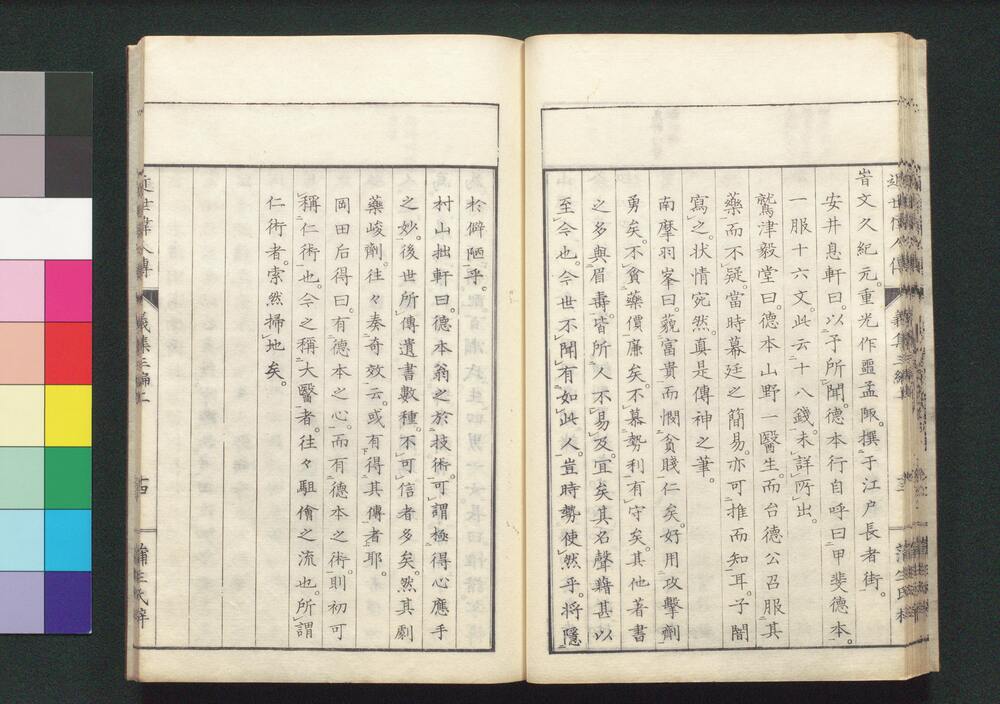 旹文久紀元。重光作噩孟陬。撰于江戸長者街。
安井息軒曰。以予所聞。德本行自呼曰甲斐德本。
一服十六文。此云十八錢。未詳所出。
鷲津毅堂曰。德本山野一醫生。而台德公召服其
藥而不疑。當時幕廷之簡易。亦可推而知耳。子闇
寫之。狀情宛然。真是傳神之筆。
南摩羽峯曰。藐富貴而憫貧賤仁矣。好用攻擊劑
勇矣。不貪藥價廉矣。不慕勢利有守矣。其他著書
之多與眉壽。皆所人不易及。宜矣其名聲藉甚以
至今也。今世不聞有如此人。豈時勢使然乎。將隱
於僻陋乎。
村山拙軒曰。德本翁之於技術。可謂極得心應手
之妙。後世所傳遺書數種。不可信者多矣。然其劇
藥峻劑。往々奏奇效云。或有得其傳者耶。
岡田后得曰。有德本之心。而有德本之術。則初可
稱仁術也。今之稱大醫者。往々駔儈之流也。所謂
仁術者。索然掃地矣。
近世偉人傳
義集三編上
十四
蒲生氏梓